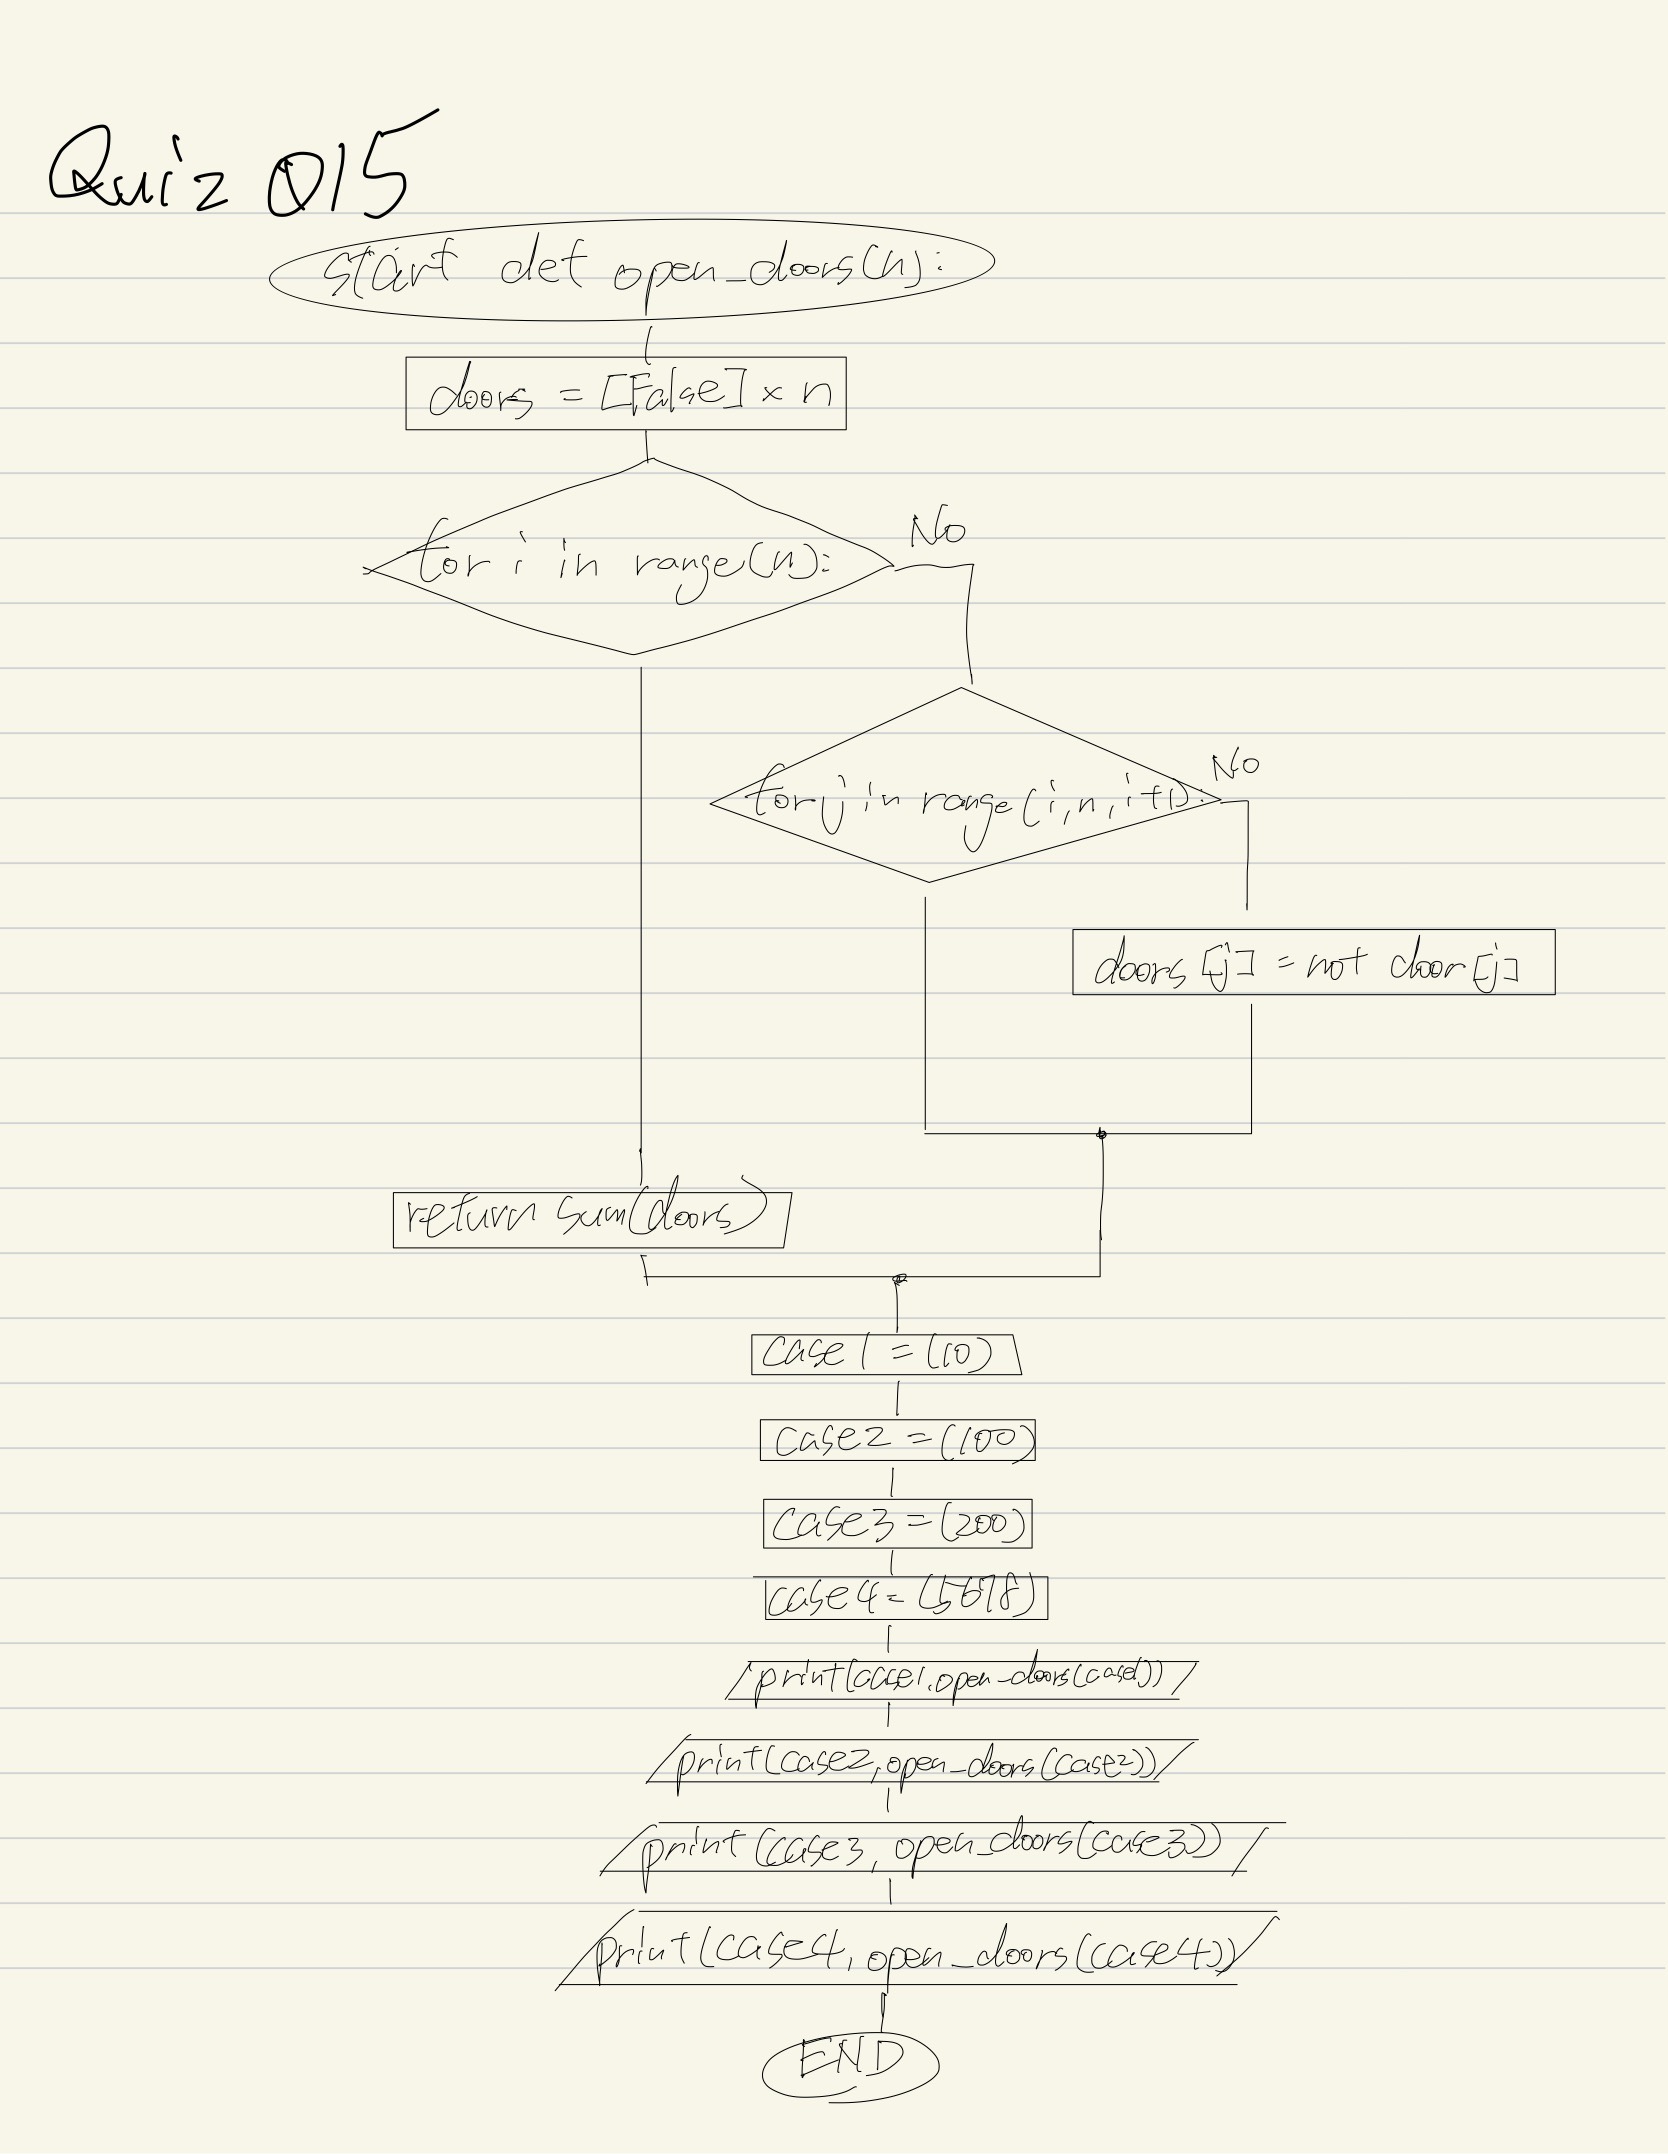 Quiz 015
start def open_doors(n):
doors = [False] × n
for i in range(n):
No
for j in range(i, n, i+1):
No
doors [j] = not door [j]
return sum(doors)
case 1 = (10)
case2 = (100)
case3 = (200)
case4 = (5678)
print(case1, open_doors(case1))
print(case2, open_doors(case2))
print(case3, open_doors(case3))
print(case4, open_doors(case4))
END